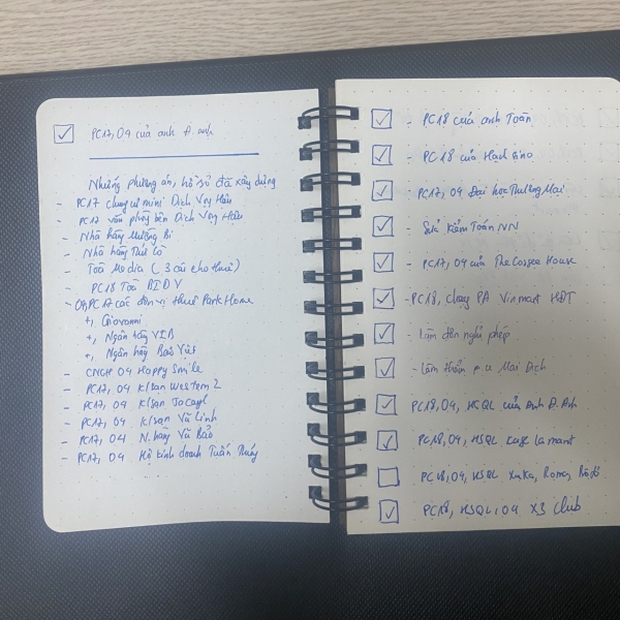 PC17, 04 của anh Đ. anh
Những phương án, hồ sơ đã xây dựng
- PC17 chung cư mini Dịch Vọng Hậu
- PC17 văn phòng bên Dịch Vọng Hậu
- Nhà hàng Mường Bi
- Nhà hàng
- Toà Media (3 cái cho thuê)
- PC18 Toà BIDV
- 04, PC17 các đơn vị thuê Park Home
+, Giovanni
+, Ngân hàng VIB
+, Ngân hàng Bảo Việt
- CNCH 04 Happy Smile
- PC17, 04 K/sạn Western 2
- PC17, 04 K/sạn
- PC17, 04 K/sạn Vũ Linh
- PC17, 04 N. hàng Vũ Bảo
- PC17, 04 Hộ kinh doanh Tuấn Thúy
- PC18 của anh Toàn
- PC18 của
- PC17, 04 Đại học Thương Mại
- Kiểm Toán NN
- PC17, 04 của The Coffee House
- PC18, chạy PA Vinmart HĐT
- Làm đơn nghỉ phép
- Làm thẩm p.a Mai Dịch
PC18, 04, HSQL của Anh Đ. Anh
PC18, 04, HSQL Lamant
PC18, 04, HSQL Roma,
PC18, HSQL, 04 X3 Club